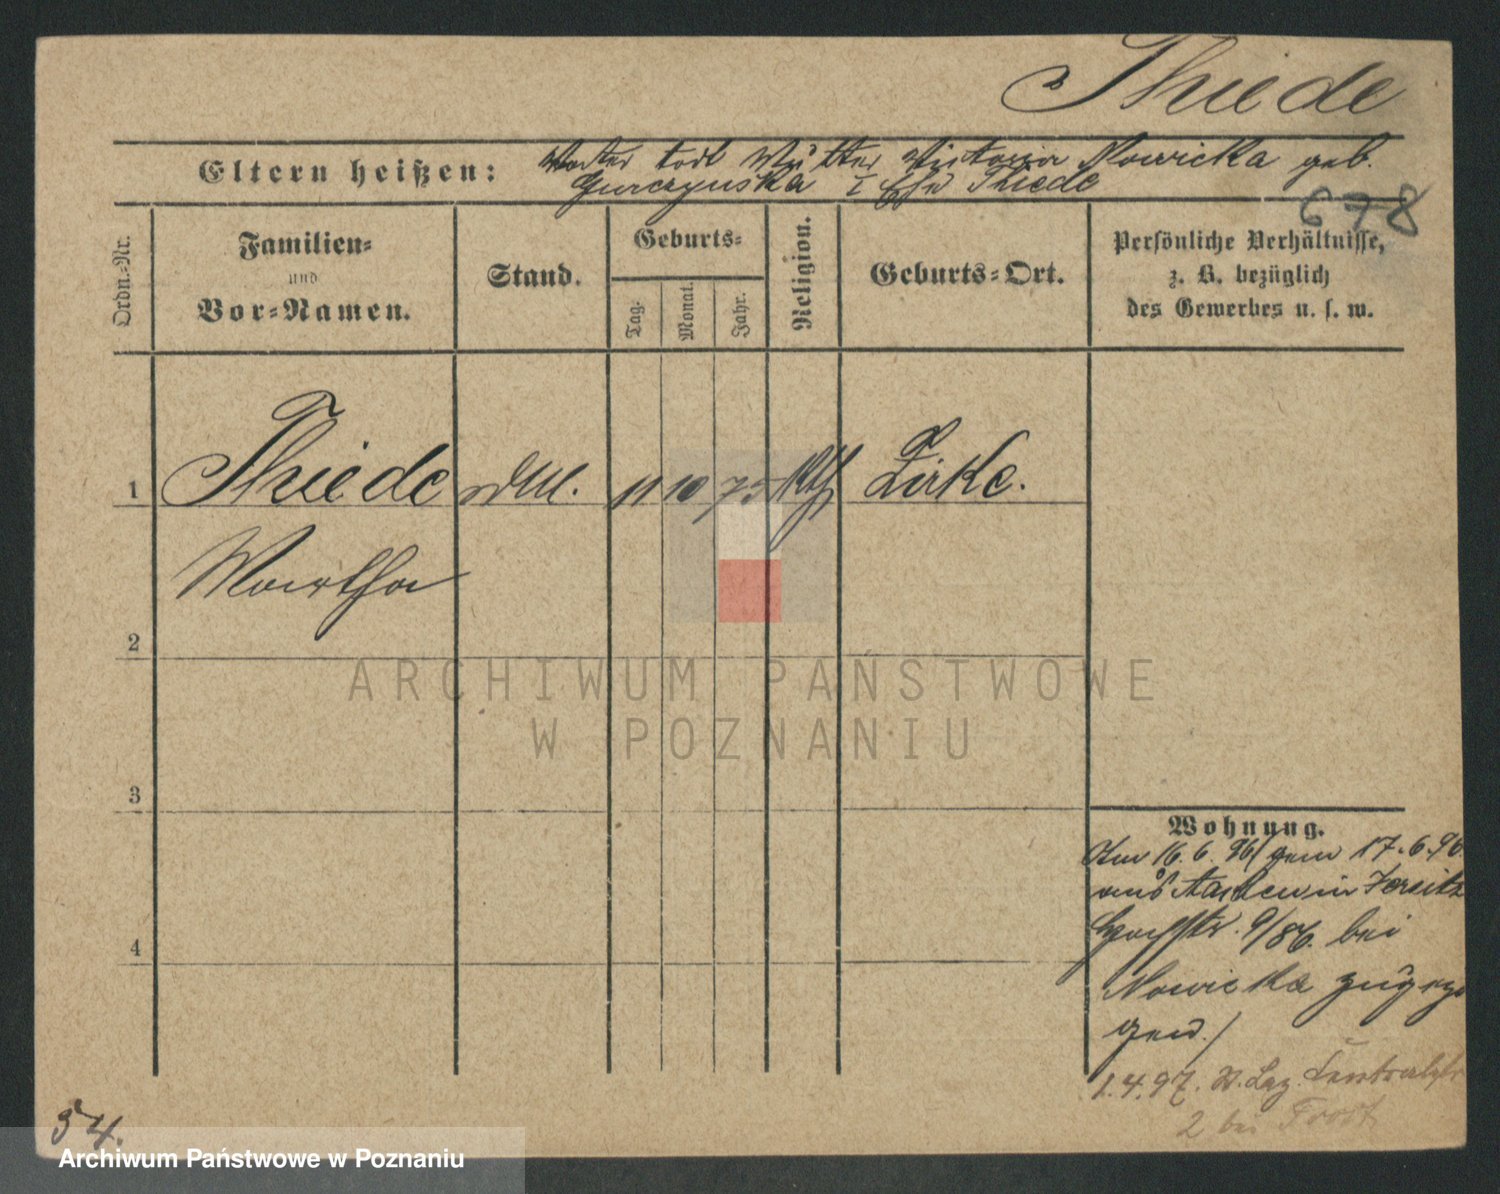 Thiede
Eltern heißen: Vater todt Mutter Victoria Nowicka geb.
Gurczynska I Ehe Thiede
678
Ordn.-Nr.
Familien-
und
Vor-Namen.
Stand.
Geburts-
Tag.
Monat.
Jahr.
Religion.
Geburts-Ort.
Persönliche Verhältnisse,
z. B. bezüglich
des Gewerbes u. s. w.
1 Thiede 11 10 75 kth Zirke.
Martha
2
ARCHIWUM PAŃSTWOWE
W POZNANIU
3
4
Wohnung.
Am 16. 6. 96/gem 17.6.96.
aus in Jersitz
9/86. bei
Nowicka zugezo
gen./
1.4.97. St. Laz. Centralstr
2 bei Frost
54.
Archiwum Państwowe w Poznaniu